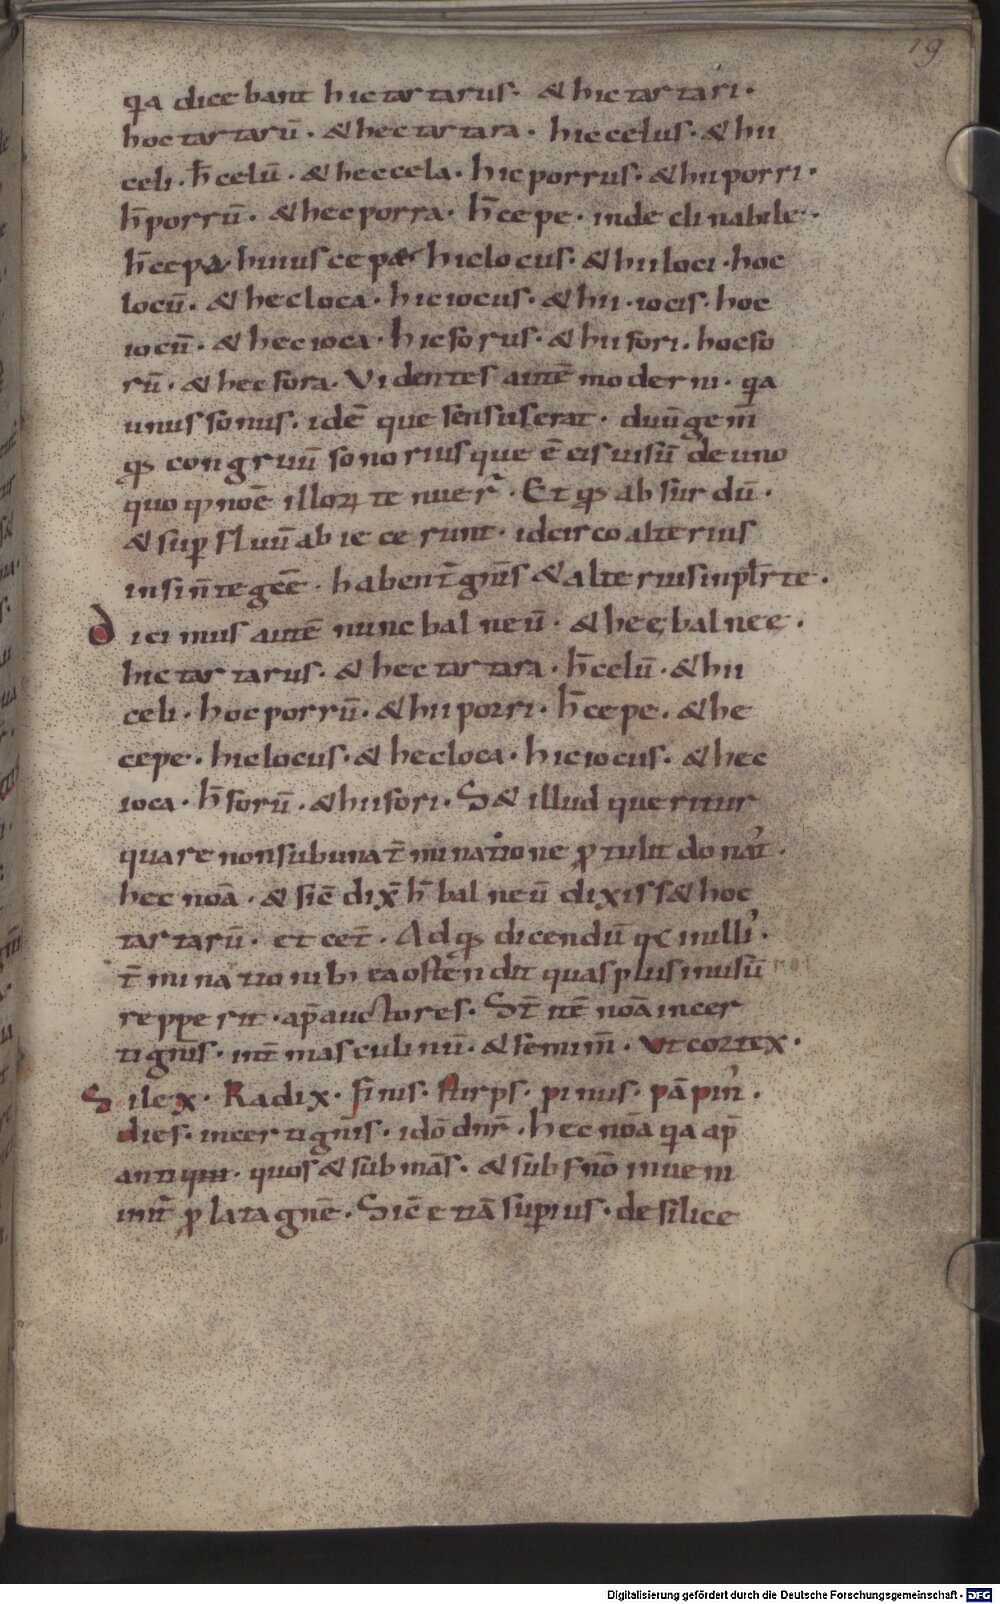 19
qa dicebant hic tartarus · & hic tartari ·
hoc tartarū · & hec tartara · hic celus · & hii
celi · h̄ celū · & hec cela · hic porrus · & hii porri ·
h̄ porrū · & hec porra · h̄ cepe · indeclinabile ·
h̄ cepa · huius cepae hic locus · & hii loci · hoc
locū · & hec loca · hic iocus · & hii · iocis · hoc
iocū · & hec ioca · hic forus · & hii fori · hoc fo
rū · & hec fora · Videntes autē moderni · qa
unus sonus · idē que sensus erat · duū gem̄
qs congruū sonorius que ē eis uisū de uno
quo noē illoꝝ tenuer̄ · Et qs absurdū ·
& suꝑfluū abiecerunt · idcirco alterius
in sin̄te geē · habent̄ gn̄is & alterius in pl̄r te ·
Dicimus autē nunc balneū · & hee balnee ·
hic tartarus · & hec tartara · h̄ celū · & hii
celi · hoc porrū · & hii porri · h̄ cepe · & he
cepe · hic locus · & hec loca · hic iocus · & hec
ioca · h̄ forū · & hii fori · S& illud queritur
quare non sub una t̄minatione ꝓtulit donat᾽ ·
hec noā · & sic̄ dix̄ h̄ balneū dixiss& hoc
tartarū · et cet̄ · Ad qs dicendū illi᾽ ·
t̄minationib; ea ostendit quas plus in usū
repperit · ap̄ auctores · St̄ itē noā incer
ti gn̄is · int̄ masculinū · & femin̄ · Vt cortex ·
Silex · Radix · finis · stirps · pinus · pāpin᾽ ·
dies · incerti gn̄is · idō dnr̄ · hec noā qa ap̄
antiquū · quos & sub mās · & sub f nō inueni
unt̄ ꝓlata gnē · Sic̄ etiā suꝑius · de silice
Digitalisierung gefördert durch die Deutsche Forschungsgemeinschaft · DFG